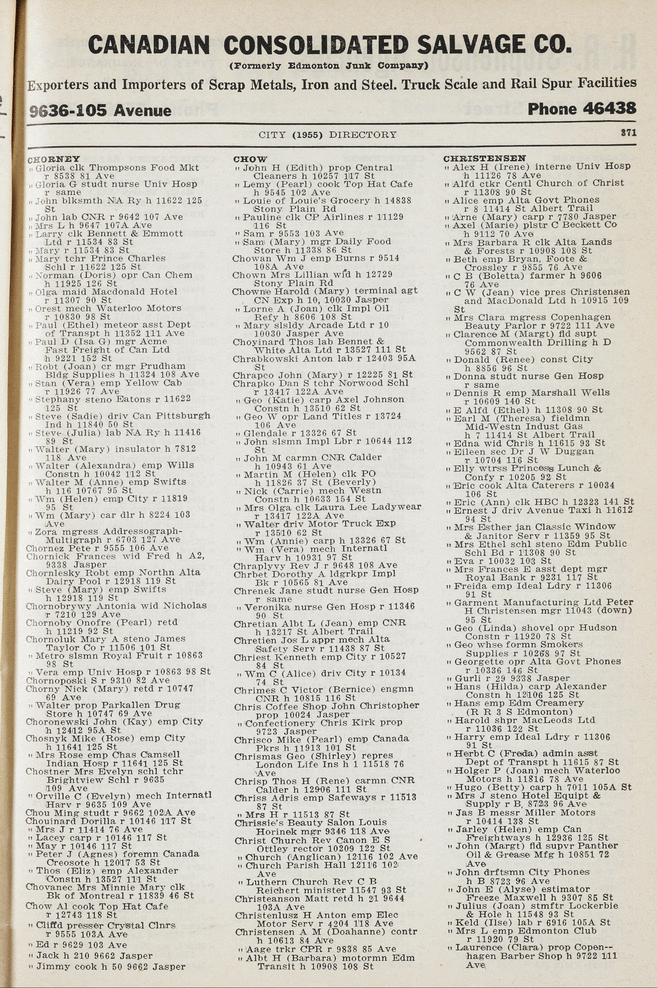 CANADIAN CONSOLIDATED SALVAGE CO.
(Formerly Edmonton Junk Company)
Exporters and Importers of Scrap Metals, Iron and Steel. Truck Scale and Rail Spur Facilities
9636-105 Avenue Phone 46438
CITY (1955) DIRECTORY 371
CHORNEY
" Gloria clk Thompsons Food Mkt
r 8538 81 Ave
" Gloria G studt nurse Univ Hosp
r same
" John blksmth NA Ry h 11622 125
St
" John lab CNR r 9642 107 Ave
" Mrs L h 9647 107A Ave
" Larry clk Bennett & Emmott
Ltd r 11534 83 St
" Mary r 11534 83 St
" Mary tchr Prince Charles
Schl r 11622 125 St
" Norman (Doris) opr Can Chem
h 11925 126 St
" Olga maid Macdonald Hotel
r 11307 90 St
" Orest mech Waterloo Motors
r 10830 98 St
" Paul (Ethel) meteor asst Dept
of Transpt h 11352 111 Ave
" Paul D (Isa G) mgr Acme
Fast Freight of Can Ltd
h 9221 152 St
" Robt (Joan) cr mgr Prudham
Bldg Supplies h 11324 108 Ave
" Stan (Vera) emp Yellow Cab
r 11926 77 Ave
" Stephany steno Eatons r 11622
125 St
" Steve (Sadie) driv Can Pittsburgh
Ind h 11840 50 St
" Steve (Julia) lab NA Ry h 11416
89 St
" Walter (Mary) insulator h 7812
118 Ave
" Walter (Alexandra) emp Wills
Constn h 10042 112 St
" Walter M (Anne) emp Swifts
h 116 10767 95 St
" Wm (Helen) emp City r 11819
95 St
" Wm (Mary) car dlr h 8224 103
Ave
" Zora mgress Addressograph-
Multigraph r 6703 127 Ave
Chornez Pete r 9555 106 Ave
Chornick Frances wid Fred h A2,
9338 Jasper
Chornlesky Robt emp Northn Alta
Dairy Pool r 12918 119 St
" Steve (Mary) emp Swifts
h 12918 119 St
Chornobrywy Antonia wid Nicholas
r 7210 129 Ave
Chornoby Onofre (Pearl) retd
h 11219 92 St
Chornoluk Mary A steno James
Taylor Co r 11506 101 St
" Metro slsmn Royal Fruit r 10863
98 St
" Vera emp Univ Hosp r 10863 98 St
Chornoposki S r 9310 82 Ave
Chorny Nick (Mary) retd r 10747
69 Ave
" Walter prop Parkallen Drug
Store h 10747 69 Ave
Choronewski John (Kay) emp City
h 12412 95A St
Chosnyk Mike (Rose) emp City
h 11641 125 St
" Mrs Rose emp Chas Camsell
Indian Hosp r 11641 125 St
Chostner Mrs Evelyn schl tchr
Brightview Schl r 9635
109 Ave
" Orville C (Evelyn) mech Internatl
Harv r 9635 109 Ave
Chou Ming studt r 9662 102A Ave
Chouinard Dorilla r 10146 117 St
" Mrs J r 11414 76 Ave
" Lacey carp r 10146 117 St
" May r 10146 117 St
" Peter J (Agnes) foremn Canada
Creosote h 12017 53 St
" Thos (Eliz) emp Alexander
Constn h 13527 111 St
Chovanec Mrs Minnie Mary clk
Bk of Montreal r 11839 46 St
Chow Al cook Top Hat Cafe
r 12743 118 St
" Cliffd presser Crystal Clnrs
r 9555 103A Ave
" Ed r 9629 103 Ave
" Jack h 210 9662 Jasper
" Jimmy cook h 50 9662 Jasper
CHOW
" John H (Edith) prop Central
Cleaners h 10257 117 St
" Lemy (Pearl) cook Top Hat Cafe
h 9545 102 Ave
" Louie of Louie's Grocery h 14838
Stony Plain Rd
" Pauline clk CP Airlines r 11129
116 St
" Sam r 9553 103 Ave
" Sam (Mary) mgr Daily Food
Store h 11338 86 St
Chowan Wm J emp Burns r 9514
108A Ave
Chown Mrs Lillian wid h 12729
Stony Plain Rd
Chowne Harold (Mary) terminal agt
CN Exp h 10, 10030 Jasper
" Lorne A (Joan) clk Impl Oil
Refy h 8606 108 St
" Mary slsldy Arcade Ltd r 10
10030 Jasper Ave
Choyinard Thos lab Bennett &
White Alta Ltd r 13527 111 St
Chrabkowski Anton lab r 12403 95A
St
Chrapco John (Mary) r 12225 81 St
Chrapko Dan S tchr Norwood Schl
r 13417 122A Ave
" Geo (Katie) carp Axel Johnson
Constn h 13510 62 St
" Geo W opr Land Titles r 13724
106 Ave
" Glendale r 13326 67 St
" John slsmn Impl Lbr r 10644 112
St
" John M carmn CNR Calder
h 10943 61 Ave
" Martin M (Helen) clk PO
h 11826 37 St (Beverly)
" Nick (Carrie) mech Westn
Constn h 10633 154 St
" Mrs Olga clk Laura Lee Ladywear
r 13417 122A Ave
" Walter driv Motor Truck Exp
r 13510 62 St
" Wm (Annie) carp h 13326 67 St
" Wm (Vera) mech Internatl
Harv h 10931 97 St
Chraplyvy Rev J r 9648 108 Ave
Chrbet Dorothy A ldgrkpr Impl
Bk r 10565 81 Ave
Chrenek Jane studt nurse Gen Hosp
r same
" Veronika nurse Gen Hosp r 11346
90 St
Chretian Albt L (Jean) emp CNR
h 13217 St Albert Trail
Chretien Jos L appr mech Alta
Safety Serv r 11438 87 St
Chriest Kenneth emp City r 10527
84 St
" Wm C (Alice) driv City r 10134
74 St
Chrimes C Victor (Bernice) engmn
CNR h 10815 116 St
Chris Coffee Shop John Christopher
prop 10024 Jasper
" Confectionery Chris Kirk prop
9723 Jasper
Chrisco Mike (Pearl) emp Canada
Pkrs h 11913 101 St
Chrismas Geo (Shirley) repres
London Life Ins h 1 11518 76
Ave
Chrisp Thos H (Rene) carmn CNR
Calder h 12906 111 St
Chriss Adris emp Safeways r 11513
87 St
" Mrs H r 11513 87 St
Chrissie's Beauty Salon Louis
Horinek mgr 9346 118 Ave
Christ Church Rev Canon E S
Ottley rector 10209 122 St
" Church (Anglican) 12116 102 Ave
" Church Parish Hall 12116 102
Ave
" Luthern Church Rev C B
Reichert minister 11547 93 St
Christeanson Matt retd h 21 9644
103A Ave
Christenlusz H Anton emp Elec
Motor Serv r 4204 118 Ave
Christensen A M (Doahanne) contr
h 10613 84 Ave
" Aage trkr CPR r 9838 85 Ave
" Albt H (Barbara) motormn Edm
Transit h 10908 108 St
CHRISTENSEN
" Alex H (Irene) interne Univ Hosp
h 11126 78 Ave
" Alfd ctkr Centl Church of Christ
r 11308 90 St
" Alice emp Alta Govt Phones
r 8 11414 St Albert Trail
" Arne (Mary) carp r 7780 Jasper
" Axel (Marie) plstr C Beckett Co
h 9112 70 Ave
" Mrs Barbara R clk Alta Lands
& Forests r 10908 108 St
" Beth emp Bryan, Foote &
Crossley r 9855 76 Ave
" C B (Boletta) farmer h 9606
76 Ave
" C W (Jean) vice pres Christensen
and MacDonald Ltd h 10915 109
St
" Mrs Clara mgress Copenhagen
Beauty Parlor r 9722 111 Ave
" Clarence M (Margt) fld supt
Commonwealth Drilling h D
9562 87 St
" Donald (Renee) const City
h 8856 96 St
" Donna studt nurse Gen Hosp
r same
" Dennis R emp Marshall Wells
r 10609 140 St
" E Alfd (Ethel) h 11308 90 St
" Earl M (Theresa) fieldmn
Mid-Westn Industl Gas
h 7 11414 St Albert Trail
" Edna wid Chris h 11615 93 St
" Eileen sec Dr J W Duggan
r 10704 116 St
" Elly wtrss Princess Lunch &
Confy r 10205 92 St
" Eric cook Alta Caterers r 10034
106 St
" Eric (Ann) clk HBC h 12323 141 St
" Ernest J driv Avenue Taxi h 11612
94 St
" Mrs Esther jan Classic Window
& Janitor Serv r 11359 95 St
" Mrs Ethel schl steno Edm Public
Schl Bd r 11308 90 St
" Eva r 10032 103 St
" Mrs Frances E asst dept mgr
Royal Bank r 9231 117 St
" Freida emp Ideal Ldry r 11306
91 St
" Garment Manufacturing Ltd Peter
H Christensen mgr 11043 (down)
95 St
" Geo (Linda) shovel opr Hudson
Constn r 11920 78 St
" Geo whse formn Smokers
Supplies r 10268 97 St
" Georgette opr Alta Govt Phones
r 10336 146 St
" Gurli r 29 9338 Jasper
" Hans (Hilda) carp Alexander
Constn h 12106 125 St
" Hans emp Edm Creamery
(R R 3 S Edmonton)
" Harold shpr MacLeods Ltd
r 11036 122 St
" Harry emp Ideal Ldry r 11306
91 St
" Herbt C (Freda) admin asst
Dept of Transpt h 11615 87 St
" Holger P (Joan) mech Waterloo
Motors h 11816 78 Ave
" Hugo (Betty) carp h 7011 105A St
" Mrs J steno Hotel Equipt &
Supply r B, 8723 96 Ave
" Jas B messr Miller Motors
r 10414 138 St
" Jarley (Helen) emp Can
Freightways h 12936 125 St
" John (Margt) fld supvr Panther
Oil & Grease Mfg h 10851 72
Ave
" John drftsmn City Phones
h B 8723 96 Ave
" John E (Alyse) estimator
Freeze Maxwell h 9307 85 St
" Julius (Joan) stmftr Lockerbie
& Hole h 11548 93 St
" Keld (Ilse) lab r 6916 105A St
" Mrs L emp Edmonton Club
r 11920 79 St
" Laurence (Clara) prop Copen-
hagen Barber Shop h 9722 111
Ave